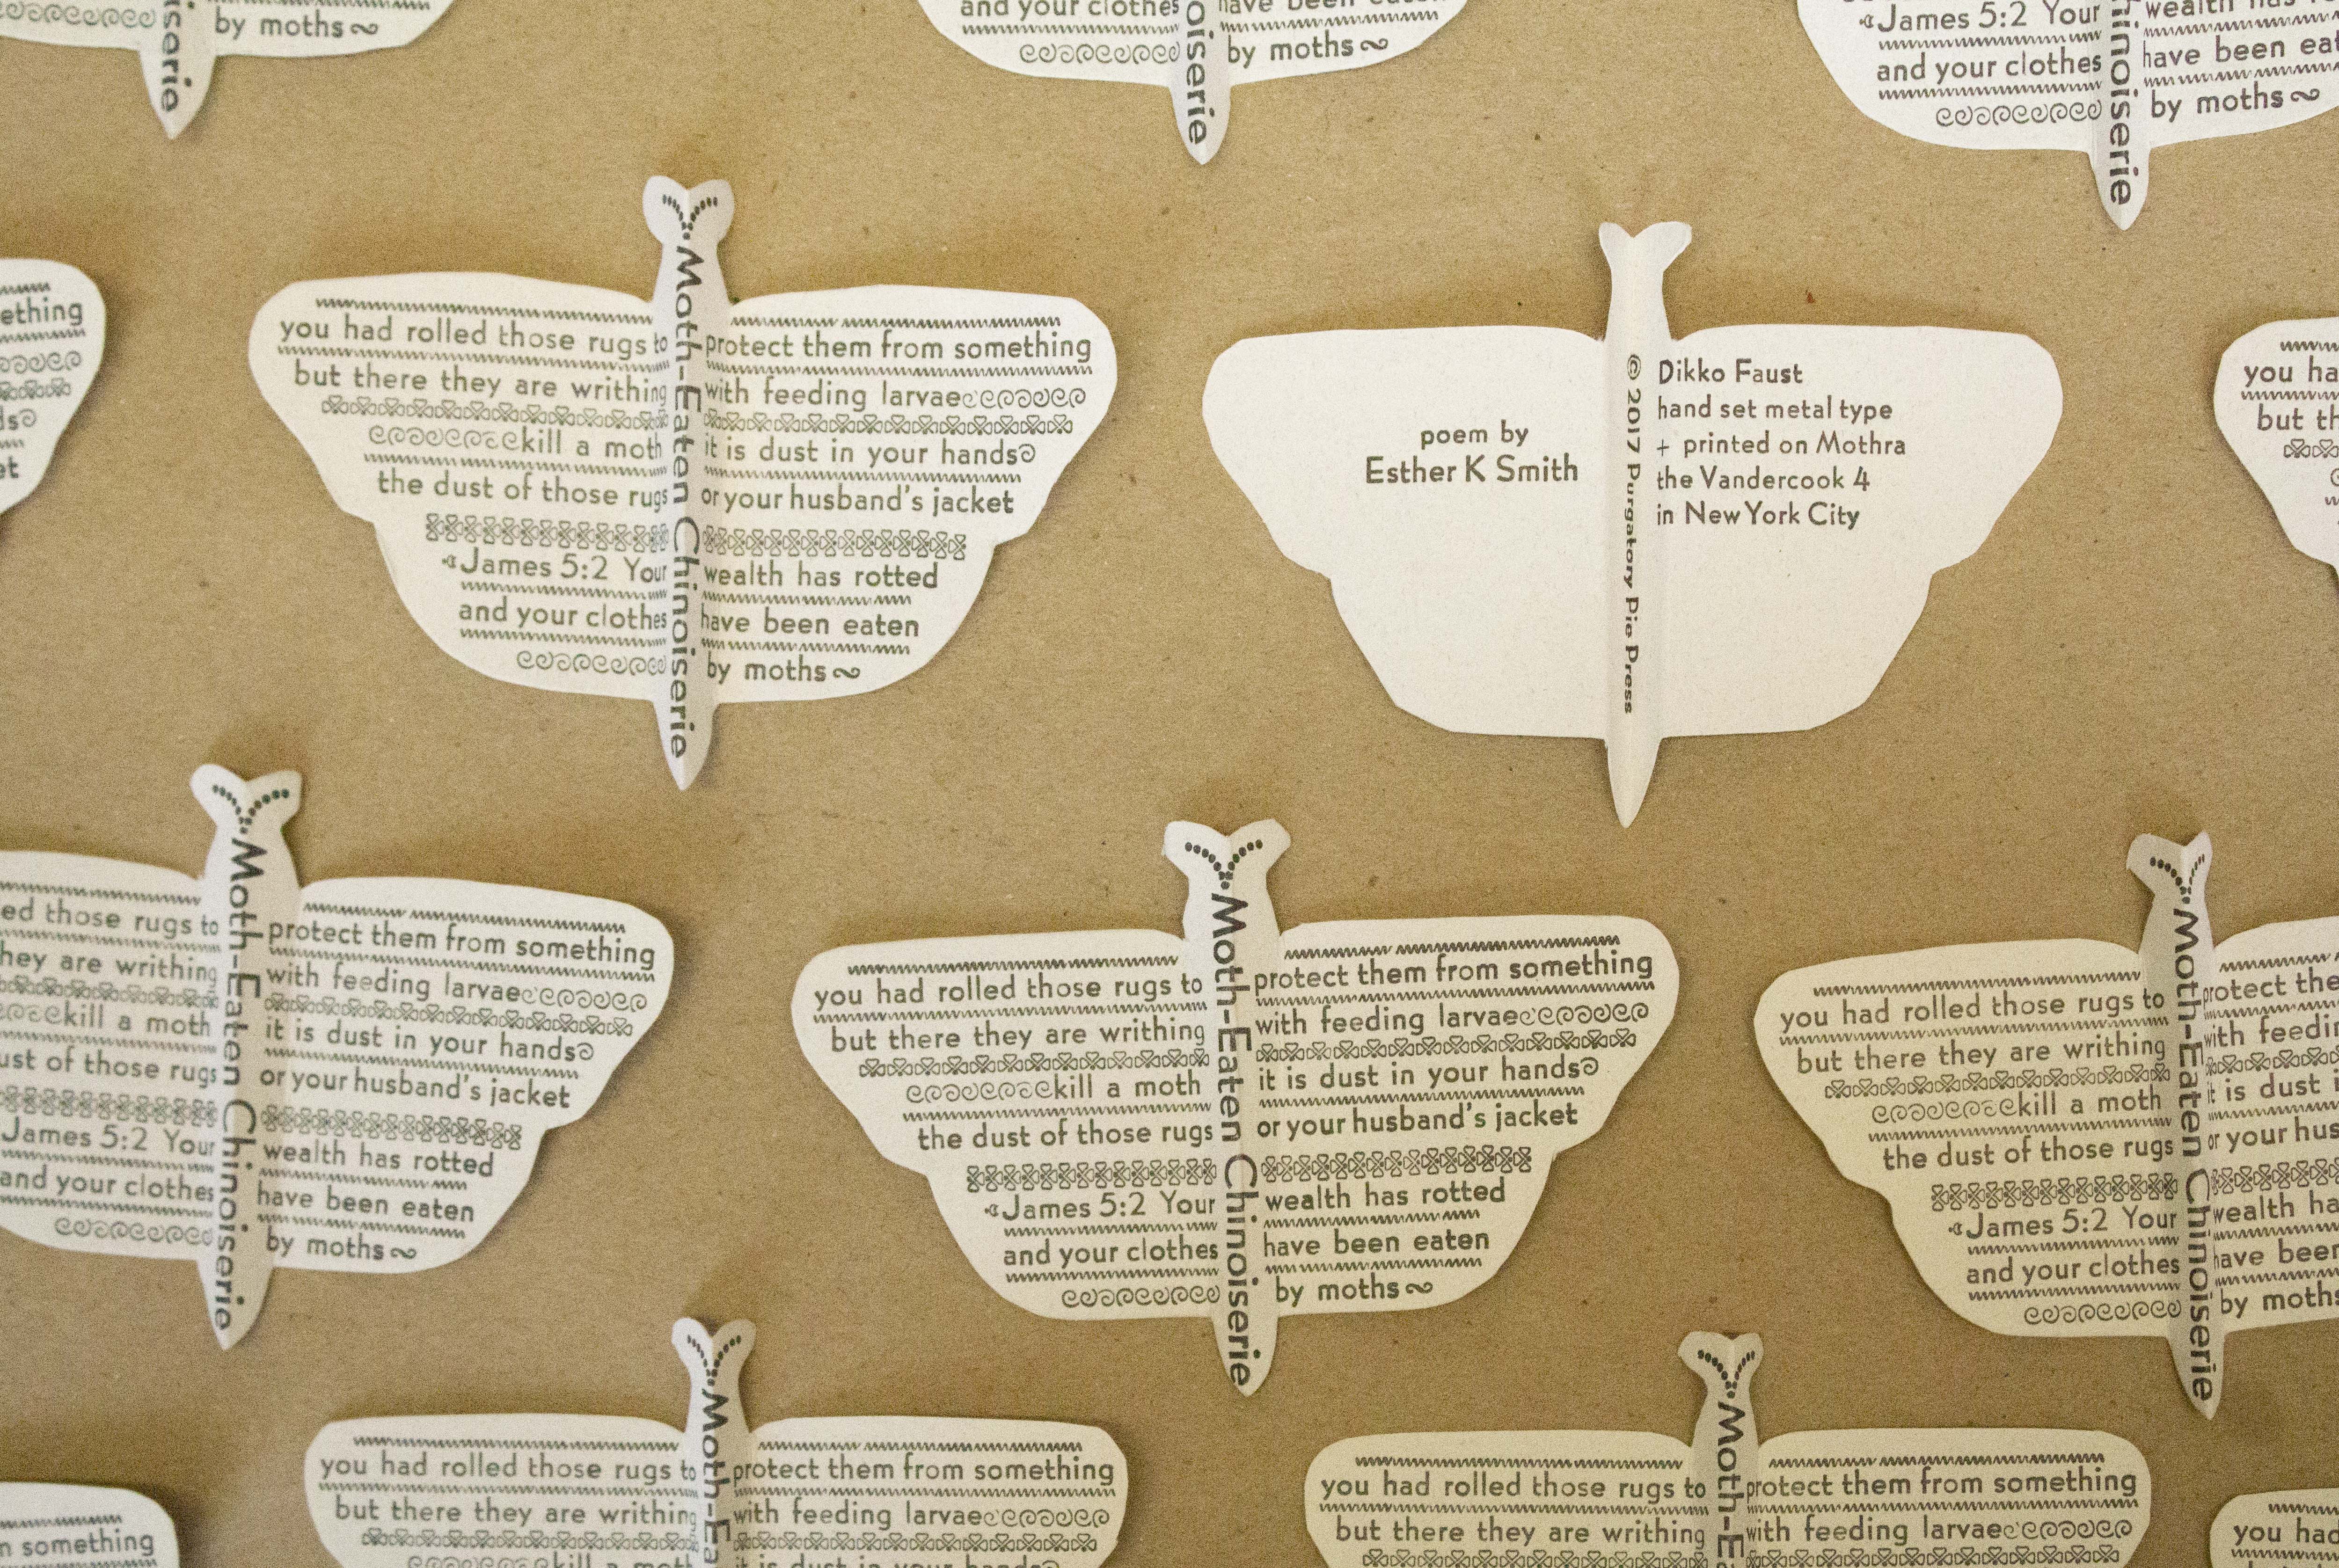 oiserie
by moths
and your clothes have been eaten
oiserie
by moths
James 5:2 Your wealth has
and your clothes have been eat
hinoiserie
by moths
ething
Moth-Eaten Chinoiserie
you had rolled those rugs to protect them from something
but there they are writhing with feeding larvae
kill a moth it is dust in your hands
the dust of those rugs or your husband's jacket
James 5:2 Your wealth has rotted
and your clothes have been eaten
by moths
poem by
Esther K Smith
© 2017 Purgatory Pie Press
Dikko Faust
hand set metal type
+ printed on Mothra
the Vandercook 4
in New York City
you ha
but th
Moth-Eaten Chinoiserie
ed those rugs to protect them from something
hey are writhing with feeding larvae
kill a moth it is dust in your hands
ust of those rugs or your husband's jacket
James 5:2 Your wealth has rotted
and your clothes have been eaten
by moths
Moth-Eaten Chinoiserie
you had rolled those rugs to protect them from something
but there they are writhing with feeding larvae
kill a moth it is dust in your hands
the dust of those rugs or your husband's jacket
James 5:2 Your wealth has rotted
and your clothes have been eaten
by moths
Moth-Eaten Chinoiserie
you had rolled those rugs to protect the
but there they are writhing with feedin
kill a moth it is dust i
the dust of those rugs or your hus
James 5:2 Your wealth ha
and your clothes have been
by moths
n something
Moth-Ea
you had rolled those rugs to protect them from something
but there they are writhing with feeding larvae
kill a moth it is dust in your hands
Moth-E
you had rolled those rugs to protect them from something
but there they are writhing with feeding larvae
you had
but the